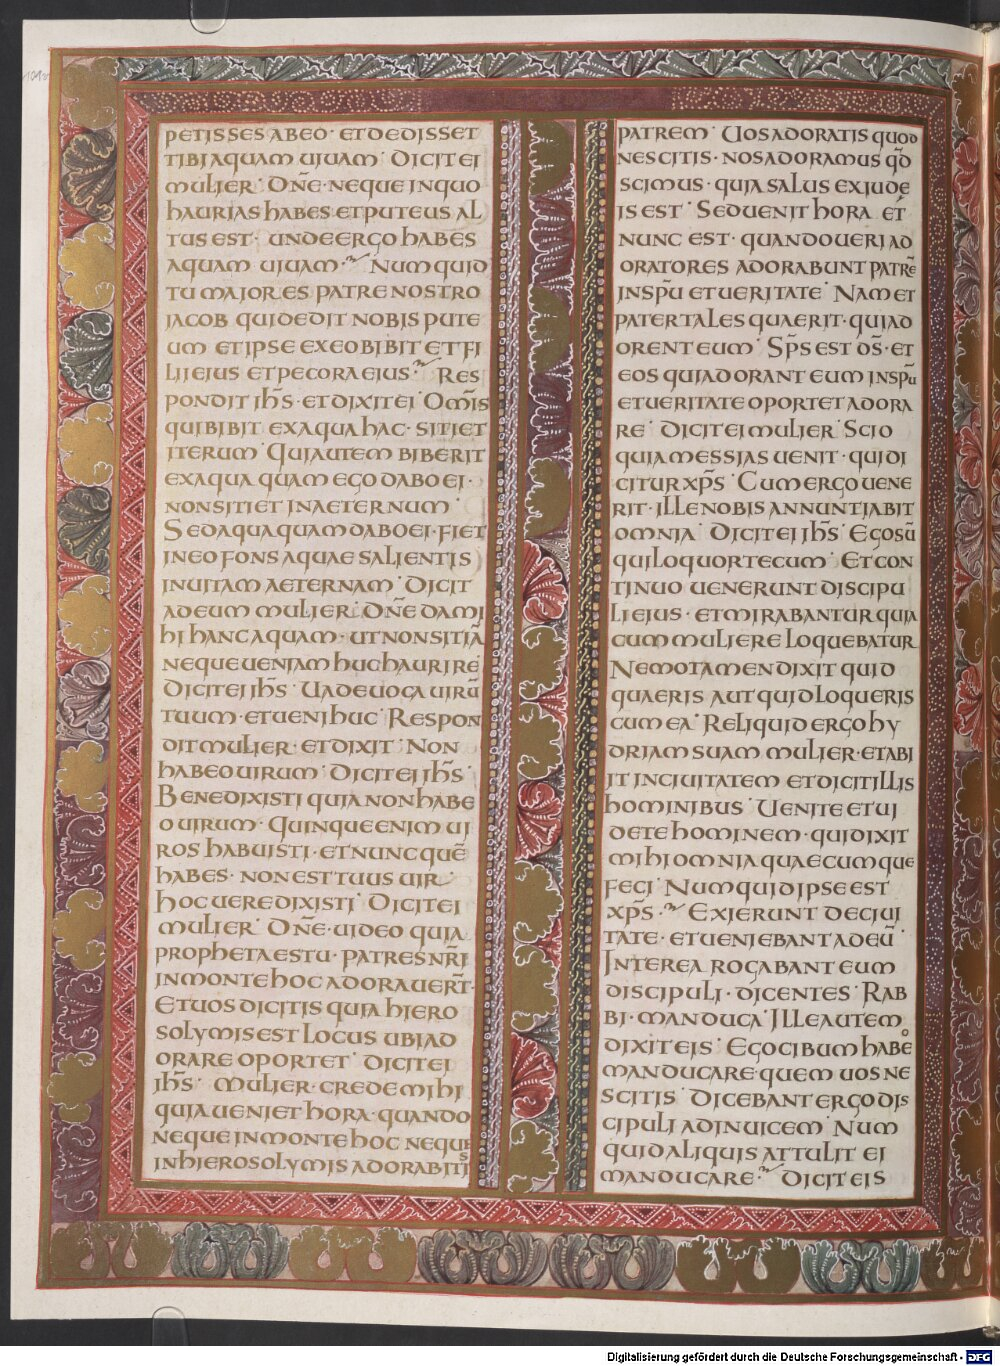 PETISSES ABEO · ET DEDISSET
TIBI AQUAM UIUAM · DICIT EI
MULIER · DÑE · NEQUE IN QUO
HAURIAS HABES ET PUTEUS AL
TUS EST · UNDE ERGO HABES
AQUAM UIUAM · NUMQUID
TU MAIOR ES PATRE NOSTRO
IACOB QUI DEDIT NOBIS PUTE
UM ET IPSE EX EO BIBIT ET FI
LII EIUS ET PECORA EIUS · RES
PONDIT IH̄S · ET DIXIT EI · OMĪS
QUI BIBIT EX AQUA HAC · SITIET
ITERUM · QUI AUTEM BIBERIT
EX AQUA QUAM EGO DABO EI ·
NON SITIET IN AETERNUM ·
SED AQUA QUAM DABO EI · FIET
IN EO FONS AQUAE SALIENTIS
IN UITAM AETERNAM · DICIT
AD EUM MULIER · DÑE DA MI
HI HANC AQUAM · UT NON SITIĀ
NEQUE UENIAM HUC HAURIRE
DICIT EI IH̄S · UADE UOCA UIRŪ
TUUM · ET UENI HUC · RESPON
DIT MULIER · ET DIXIT · NON
HABEO UIRUM · DICIT EI IH̄S ·
BENE DIXISTI QUIA NON HABE
O UIRUM · QUINQUE ENIM UI
ROS HABUISTI · ET NUNC QUĒ
HABES · NON EST TUUS UIR ·
HOC UERE DIXISTI · DICIT EI
MULIER · DÑE · UIDEO QUIA
PROPHETA ES TU · PATRES NR̄I
IN MONTE HOC ADORAUER̄T ·
ET UOS DICITIS QUIA HIERO
SOLYMIS EST LOCUS UBI AD
ORARE OPORTET · DICIT EI
IH̄S · MULIER · CREDE MIHI
QUIA UENIET HORA · QUANDO
NEQUE IN MONTE HOC NEQUE
IN HIEROSOLYMIS ADORABITIS
PATREM · UOS ADORATIS QUOD
NESCITIS · NOS ADORAMUS QD̄
SCIMUS · QUIA SALUS EX IUDE
IS EST · SED UENIT HORA ET
NUNC EST · QUANDO UERI AD
ORATORES ADORABUNT PATRĒ
IN SPŪ ET UERITATE · NAM ET
PATER TALES QUAERIT · QUI AD
ORENT EUM · SP̄S EST D̄S · ET
EOS QUI ADORANT EUM IN SPŪ
ET UERITATE OPORTET ADORA
RE · DICIT EI MULIER · SCIO
QUIA MESSIAS UENIT · QUI DI
CITUR XP̄S · CUM ERGO UENE
RIT · ILLE NOBIS ANNUNTIABIT
OMNIA · DICIT EI IH̄S · EGO SŪ
QUI LOQUOR TECUM · ET CON
TINUO UENERUNT DISCIPU
LI EIUS · ET MIRABANTUR QUIA
CUM MULIERE LOQUEBATUR
NEMO TAMEN DIXIT QUID
QUAERIS AUT QUID LOQUERIS
CUM EA · RELIQUID ERGO HY
DRIAM SUAM MULIER · ET ABI
IT IN CIUITATEM ET DICIT ILLIS
HOMINIBUS · UENITE ET UI
DETE HOMINEM · QUI DIXIT
MIHI OMNIA QUAECUMQUE
FECI · NUMQUID IPSE EST
XP̄S · EXIERUNT DE CIUI
TATE · ET UENIEBANT AD EŪ ·
INTEREA ROGABANT EUM
DISCIPULI · DICENTES · RAB
BI · MANDUCA · ILLE AUTEM
DIXIT EIS · EGO CIBUM HABEO
MANDUCARE · QUEM UOS NE
SCITIS · DICEBANT ERGO DIS
CIPULI AD INUICEM · NUM
QUID ALIQUIS ATTULIT EI
MANDUCARE · DICIT EIS
Digitalisierung gefördert durch die Deutsche Forschungsgemeinschaft - DFG